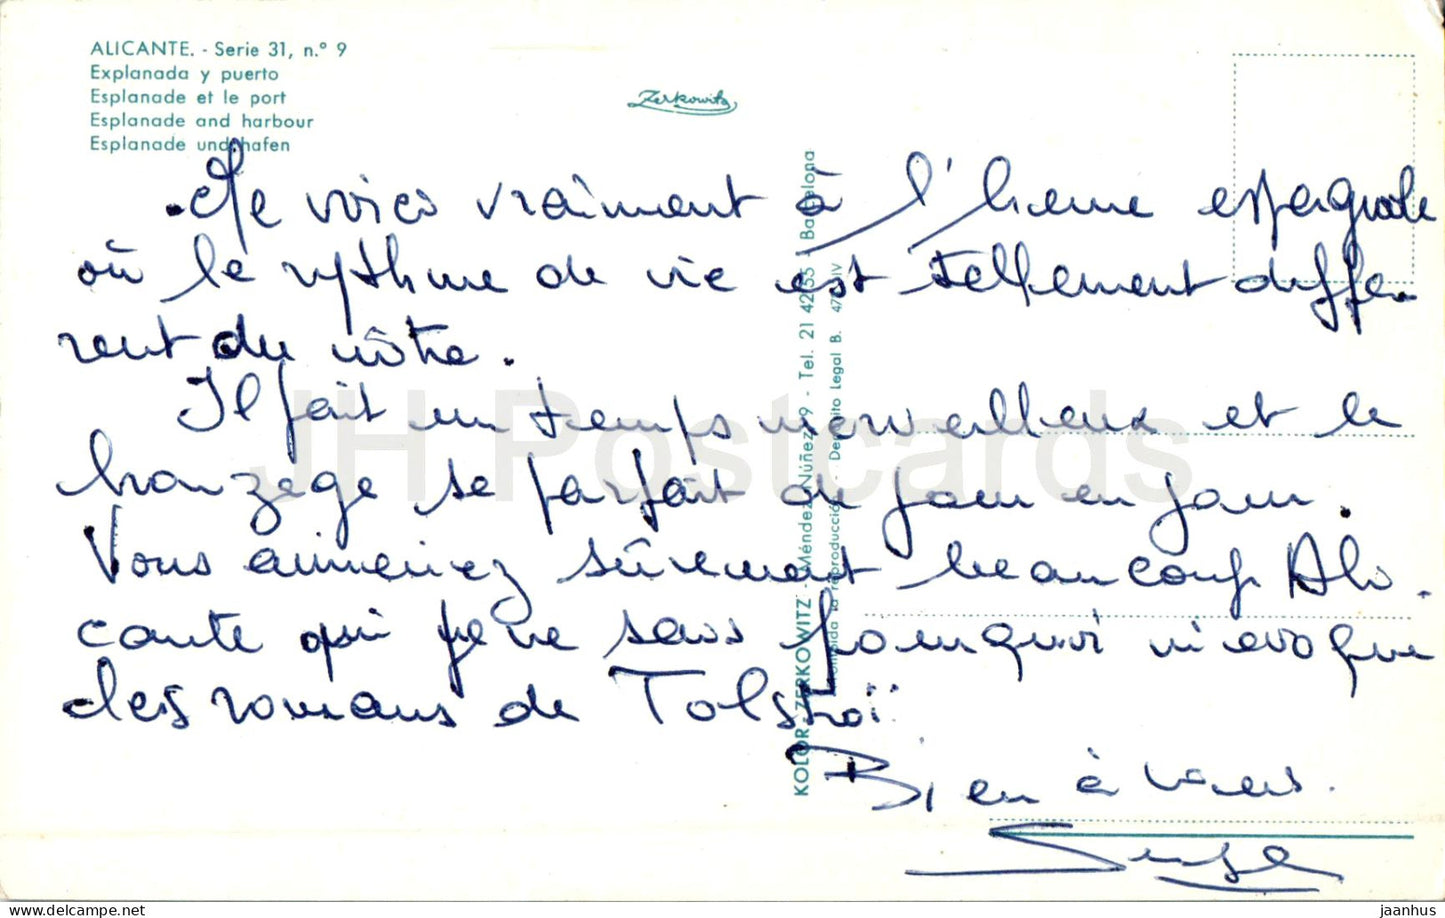 ALICANTE. - Serie 31, n.º 9
Explanada y puerto
Esplanade et le port
Esplanade and harbour
Esplanade und hafen
Zerkowitz
Je vis vraiment à l'heure espagnole
où le rythme de vie est tellement diffé-
rent du nôtre.
Il fait un temps merveilleux et le
bronzage se parfait de jour en jour.
Vous aimeriez sûrement beaucoup Ali-
cante qui je ne sais pourquoi m'évoque
des romans de Tolstoï
Bien à vous.
KOLOR-ZERKOWITZ - Méndez Núñez, 9 - Tel. 21 42 55 - Barcelona
Prohibida la reproducción - Depósito Legal B.
JH Postcards
delcampe.net
jaanhus